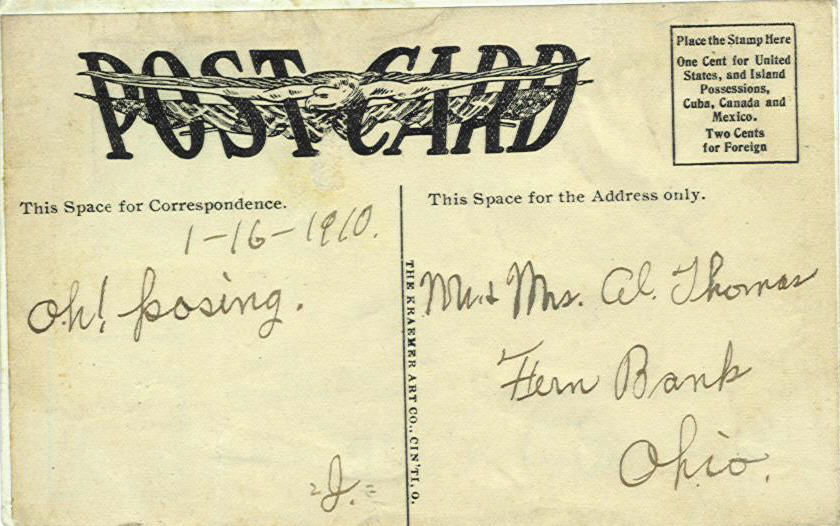 POST CARD
Place the Stamp Here
One Cent for United
States, and Island
Possessions,
Cuba, Canada and
Mexico.
Two Cents
for Foreign
This Space for Correspondence.
1-16-1910.
Oh! posing.
=J.=
THE KRAEMER ART CO., CIN'TI, O.
This Space for the Address only.
Mr. & Mrs. Al. Thomas
Fern Bank
Ohio.